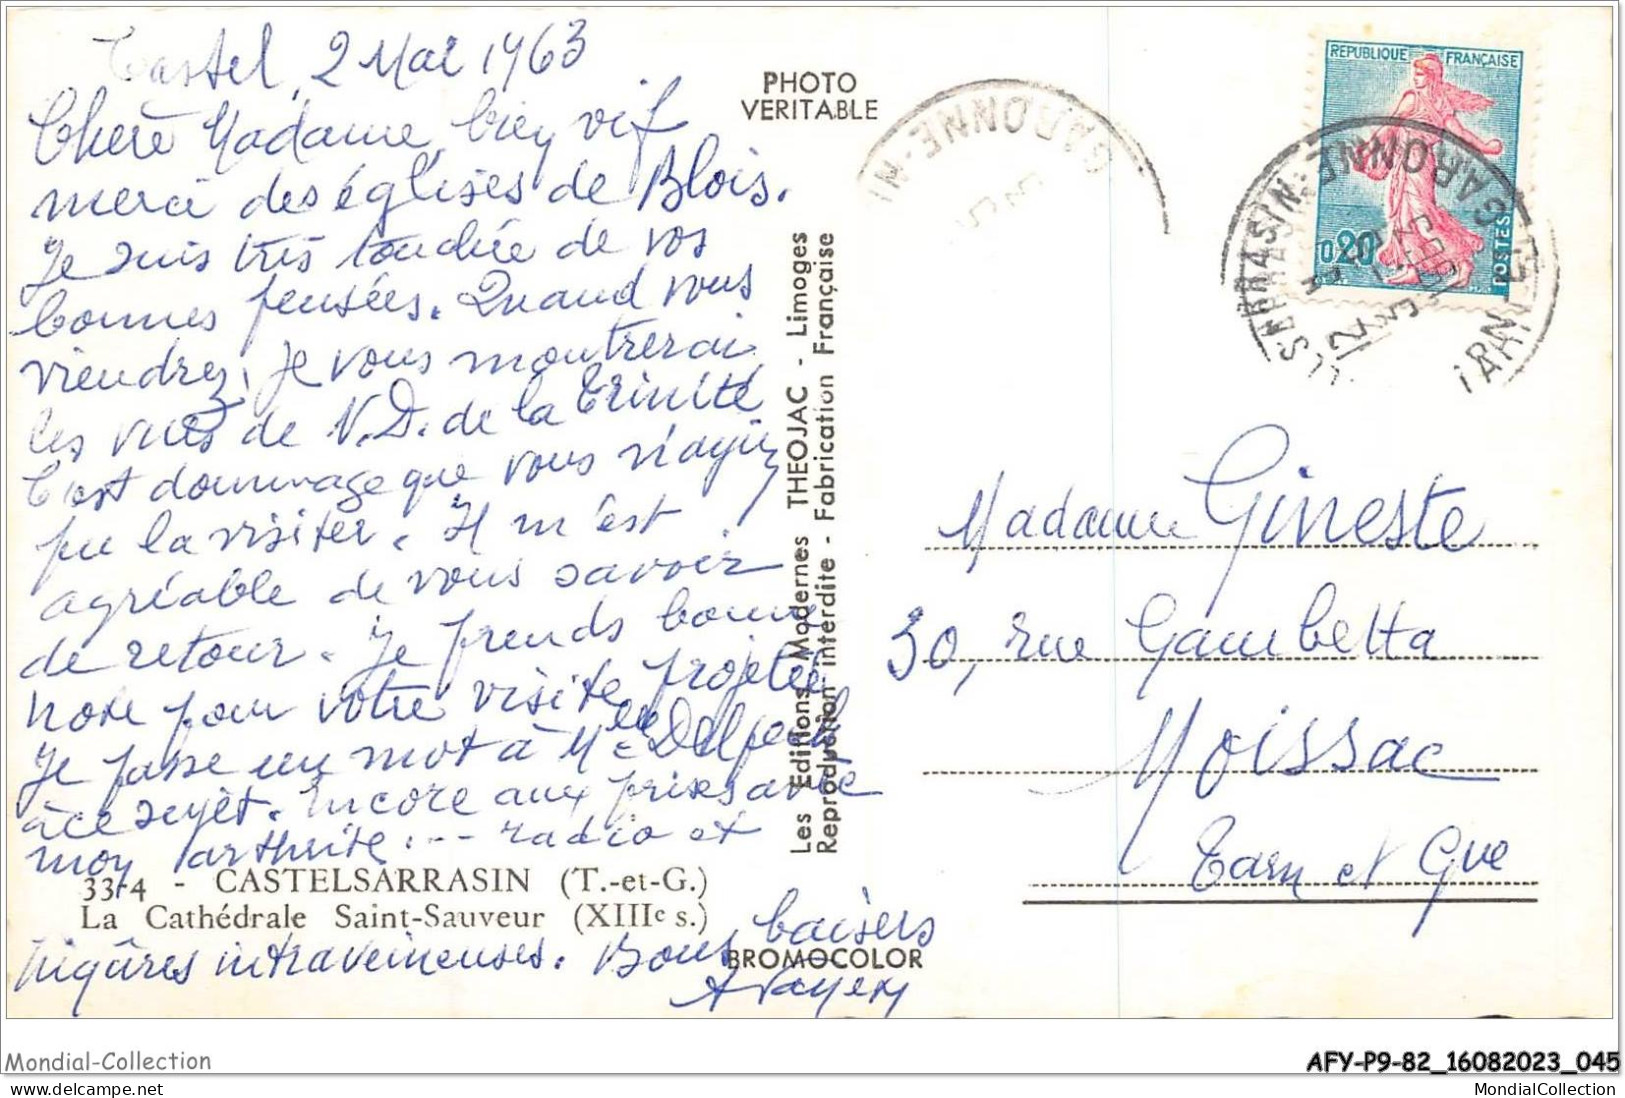 Castel, 2 Mai 1963
Chère Madame, bien vif
merci des églises de Blois.
Je suis très touchée de vos
bonnes pensées. Quand vous
viendrez, je vous montrerai
les vues de N.D. de la Trinité
C'est dommage que vous n'ayiez
pu la visiter. Il m'est
agréable de vous savoir
de retour. Je prends bonne
note pour votre visite projetée
Je passe un mot à Melle Delpech
à ce sujet. Encore aux prises avec
mon arthrite... radio et
33-4 - CASTELSARRASIN (T.-et-G.)
La Cathédrale Saint-Sauveur (XIIIe s.)
piqûres intraveineuses. Bons baisers
PHOTO
VERITABLE
Les Editions Modernes THEOJAC - Limoges
Reproduction interdite - Fabrication Française
BROMOCOLOR
GARONNE
REPUBLIQUE FRANÇAISE
0,20
POSTES
GARONNE
Madame Gineste
30, rue Gambetta
Moissac
Tarn et Gne
Mondial-Collection
AFY-P9-82_16082023_045
MondialCollection